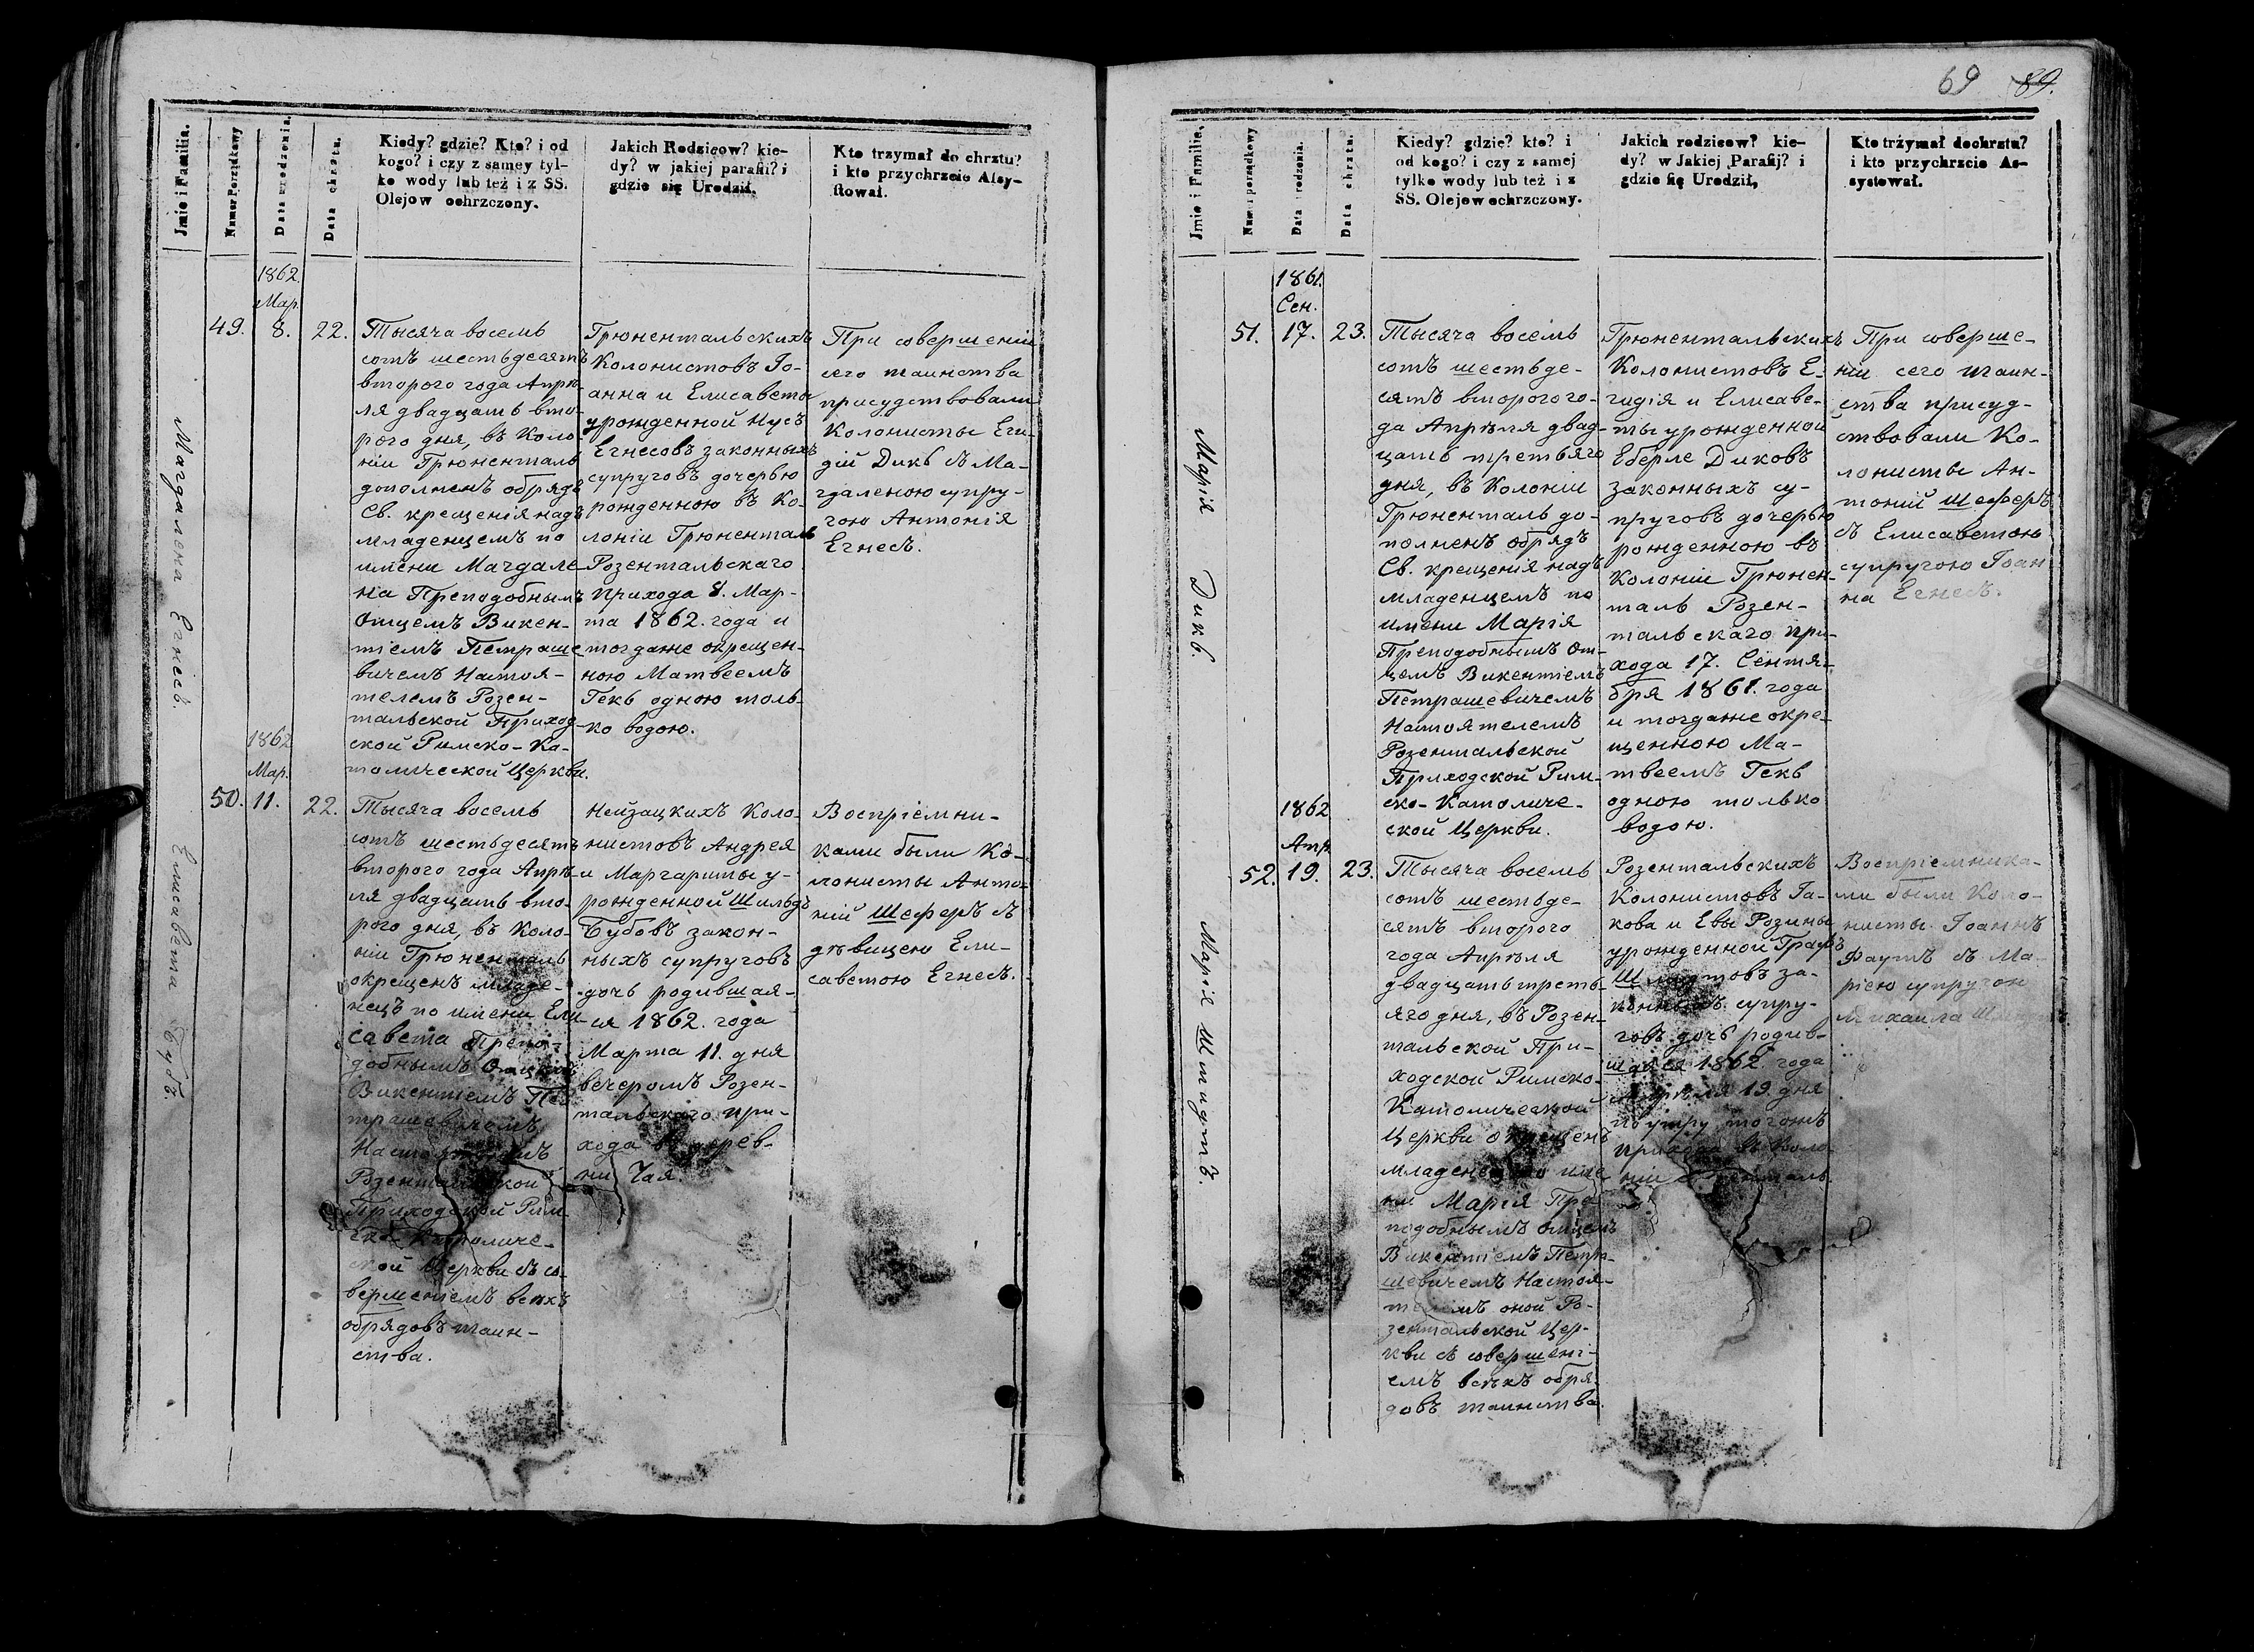 69 89.
Jmie i Familia.
Numer Porządkowy
Data urodzenia.
Data chrztu.
Kiedy? gdzie? Kto? i od
kogo? i czy z samey tyl-
ko wody lub też i z SS.
Olejow ochrzczony.
Jakich Rodzicow? kie-
dy? w jakiej parafii? i
gdzie się Urodził.
Kto trzymał do chrztu?
i kto przychrzcie Assy-
stował.
Магдалена Егнесъ.
1862
Мар.
49. 8. 22.
Тысяча восемь
сотъ шестьдесятъ
второго года Апрѣ-
ля двадцать вто-
рого дня, въ Коло-
ніи Грюненталь
дополненъ обрядъ
Св. крещенія надъ
младенцемъ по
имени Магдале-
на Преподобнымъ
Отцемъ Викен-
тіемъ Петраше-
вичемъ Настоя-
телемъ Розен-
тальской Приход-
ской Римско-Ка-
толической Церкви.
Грюнентальскихъ
Колонистовъ Іо-
анна и Елисаветы
урожденной Нусъ
Егнесовъ законныхъ
супруговъ дочерью
рожденною въ Ко-
лоніи Грюненталь
Розентальскаго
прихода 8. Мар-
та 1862. года и
тогдаже окрещен-
ною Матвеемъ
Гекъ одною толь-
ко водою.
При совершеніи
сего таинства
присудствовали
Колонисты Еги-
дій Дикъ съ Ма-
гдаленою супру-
гою Антонія
Егнесъ.
Елисавета Бубъ.
1862
Мар.
50. 11. 22.
Тысяча восемь
сотъ шестьдесятъ
второго года Апрѣ-
ля двадцать вто-
рого дня, въ Коло-
ніи Грюненталь
окрещенъ младе-
нецъ по имени Ели-
савета Препо-
добнымъ Отцемъ
Викентіемъ Пе-
трашевичемъ
Настоятелемъ
Розентальской
Приходской Рим-
ско-Католиче-
ской Церкви съ со-
вершеніемъ всѣхъ
обрядовъ таин-
ства.
Нейзацкихъ Коло-
нистовъ Андрея
и Маргариты у-
рожденной Шильдъ
Бубовъ закон-
ныхъ супруговъ
дочь родившая-
ся 1862. года
Марта 11. дня
вечеромъ Розен-
тальскаго при-
хода въ дерев-
ни Чая.
Воспріемни-
ками были Ко-
лонисты Анто-
ній Шеферъ съ
дѣвицею Ели-
саветою Егнесъ.
Jmie i Familia.
Numer porządkowy
Data urodzenia.
Data chrztu.
Kiedy? gdzie? kto? i
od kogo? i czy z samej
tylko wody lub też i z
SS. Olejow ochrzczony.
Jakich rodzicow? kie-
dy? w Jakiej Parafij? i
gdzie się Urodził,
Kto trzymał dochrztu?
i kto przychrzcie As-
systował.
Марія Дикъ.
1861.
Сен.
51. 17. 23.
Тысяча восемь
сотъ шестьде-
сятъ второго го-
да Апрѣля двад-
цать третьяго
дня, въ Колоніи
Грюненталь до-
полненъ обрядъ
Св. крещенія надъ
младенцемъ по
имени Марія
Преподобнымъ От-
цемъ Викентіемъ
Петрашевичемъ
Настоятелемъ
Розентальской
Приходской Рим-
ско-Католиче-
ской Церкви.
Грюнентальскихъ
Колонистовъ Е-
гидія и Елисаве-
ты урожденной
Еберле Диковъ
законныхъ су-
пруговъ дочерью
рожденною въ
Колоніи Грюнен-
таль Розен-
тальскаго при-
хода 17. Сентя-
бря 1861. года
и тогдаже окре-
щенною Ма-
твеемъ Гекъ
одною только
водою.
При соверше-
ніи сего таин-
ства присуд-
ствовали Ко-
лонисты Ан-
тоній Шеферъ
съ Елисаветою
супругою Іоан-
на Егнесъ.
Марія Шмидтъ.
1862
Апр.
52. 19. 23.
Тысяча восемь
сотъ шестьде-
сятъ второго
года Апрѣля
двадцать треть-
яго дня, въ Розен-
тальской При-
ходской Римско-
Католической
Церкви окрещенъ
младенецъ по име-
ни Марія Пре-
подобнымъ Отцемъ
Викентіемъ Петра-
шевичемъ Настоя-
телемъ оной Ро-
зентальской Цер-
кви съ совершені-
емъ всѣхъ обря-
довъ таинства.
Розентальскихъ
Колонистовъ Іа-
кова и Евы Розины
урожденной Графъ
Шмидтовъ за-
конныхъ супру-
говъ дочь родив-
шаяся 1862. года
Апрѣля 19. дня
по утру тогожъ
прихода въ Коло-
ніи Розенталь.
Воспріемника-
ми были Коло-
нисты Іоаннъ
Фаутъ съ Ма-
ріею супругою
Михаила